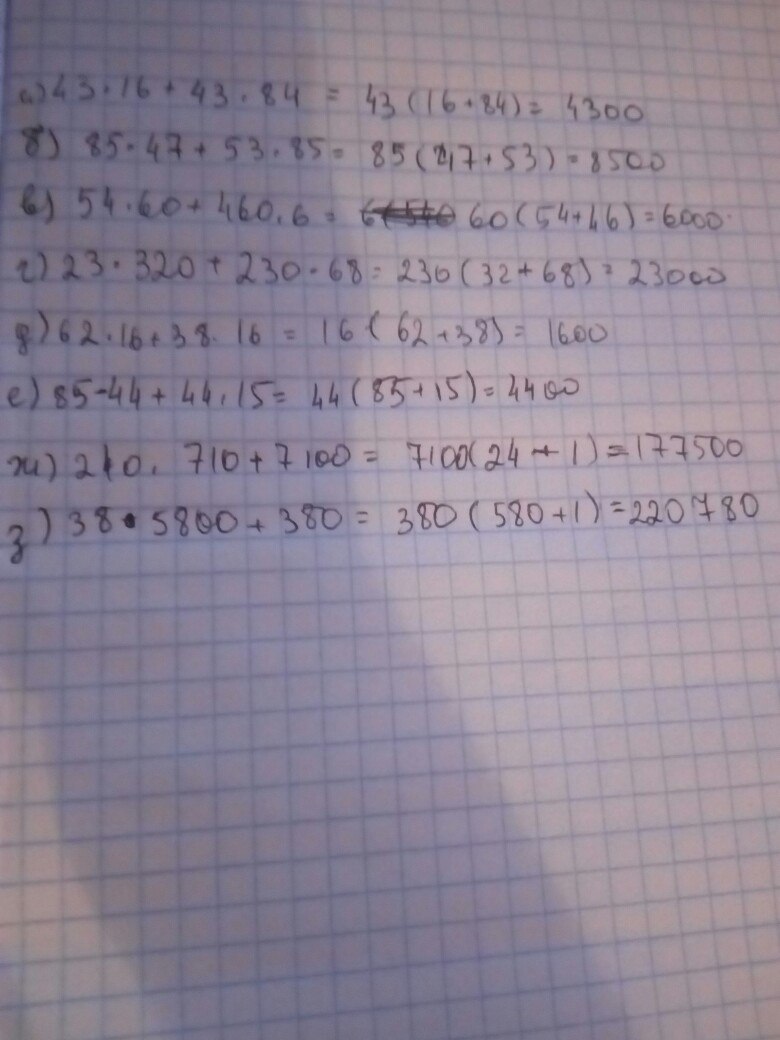 а) 43·16 + 43·84 = 43(16+84) = 4300
б) 85·47 + 53·85 = 85(47+53) = 8500
в) 54·60 + 460·6 = 60(54+46) = 6000
г) 23·320 + 230·68 = 230(32+68) = 23000
д) 62·16 + 38·16 = 16(62+38) = 1600
е) 85·44 + 44·15 = 44(85+15) = 4400
ж) 240·710 + 7100 = 7100(24+1) = 177500
з) 38·5800 + 380 = 380(580+1) = 220780